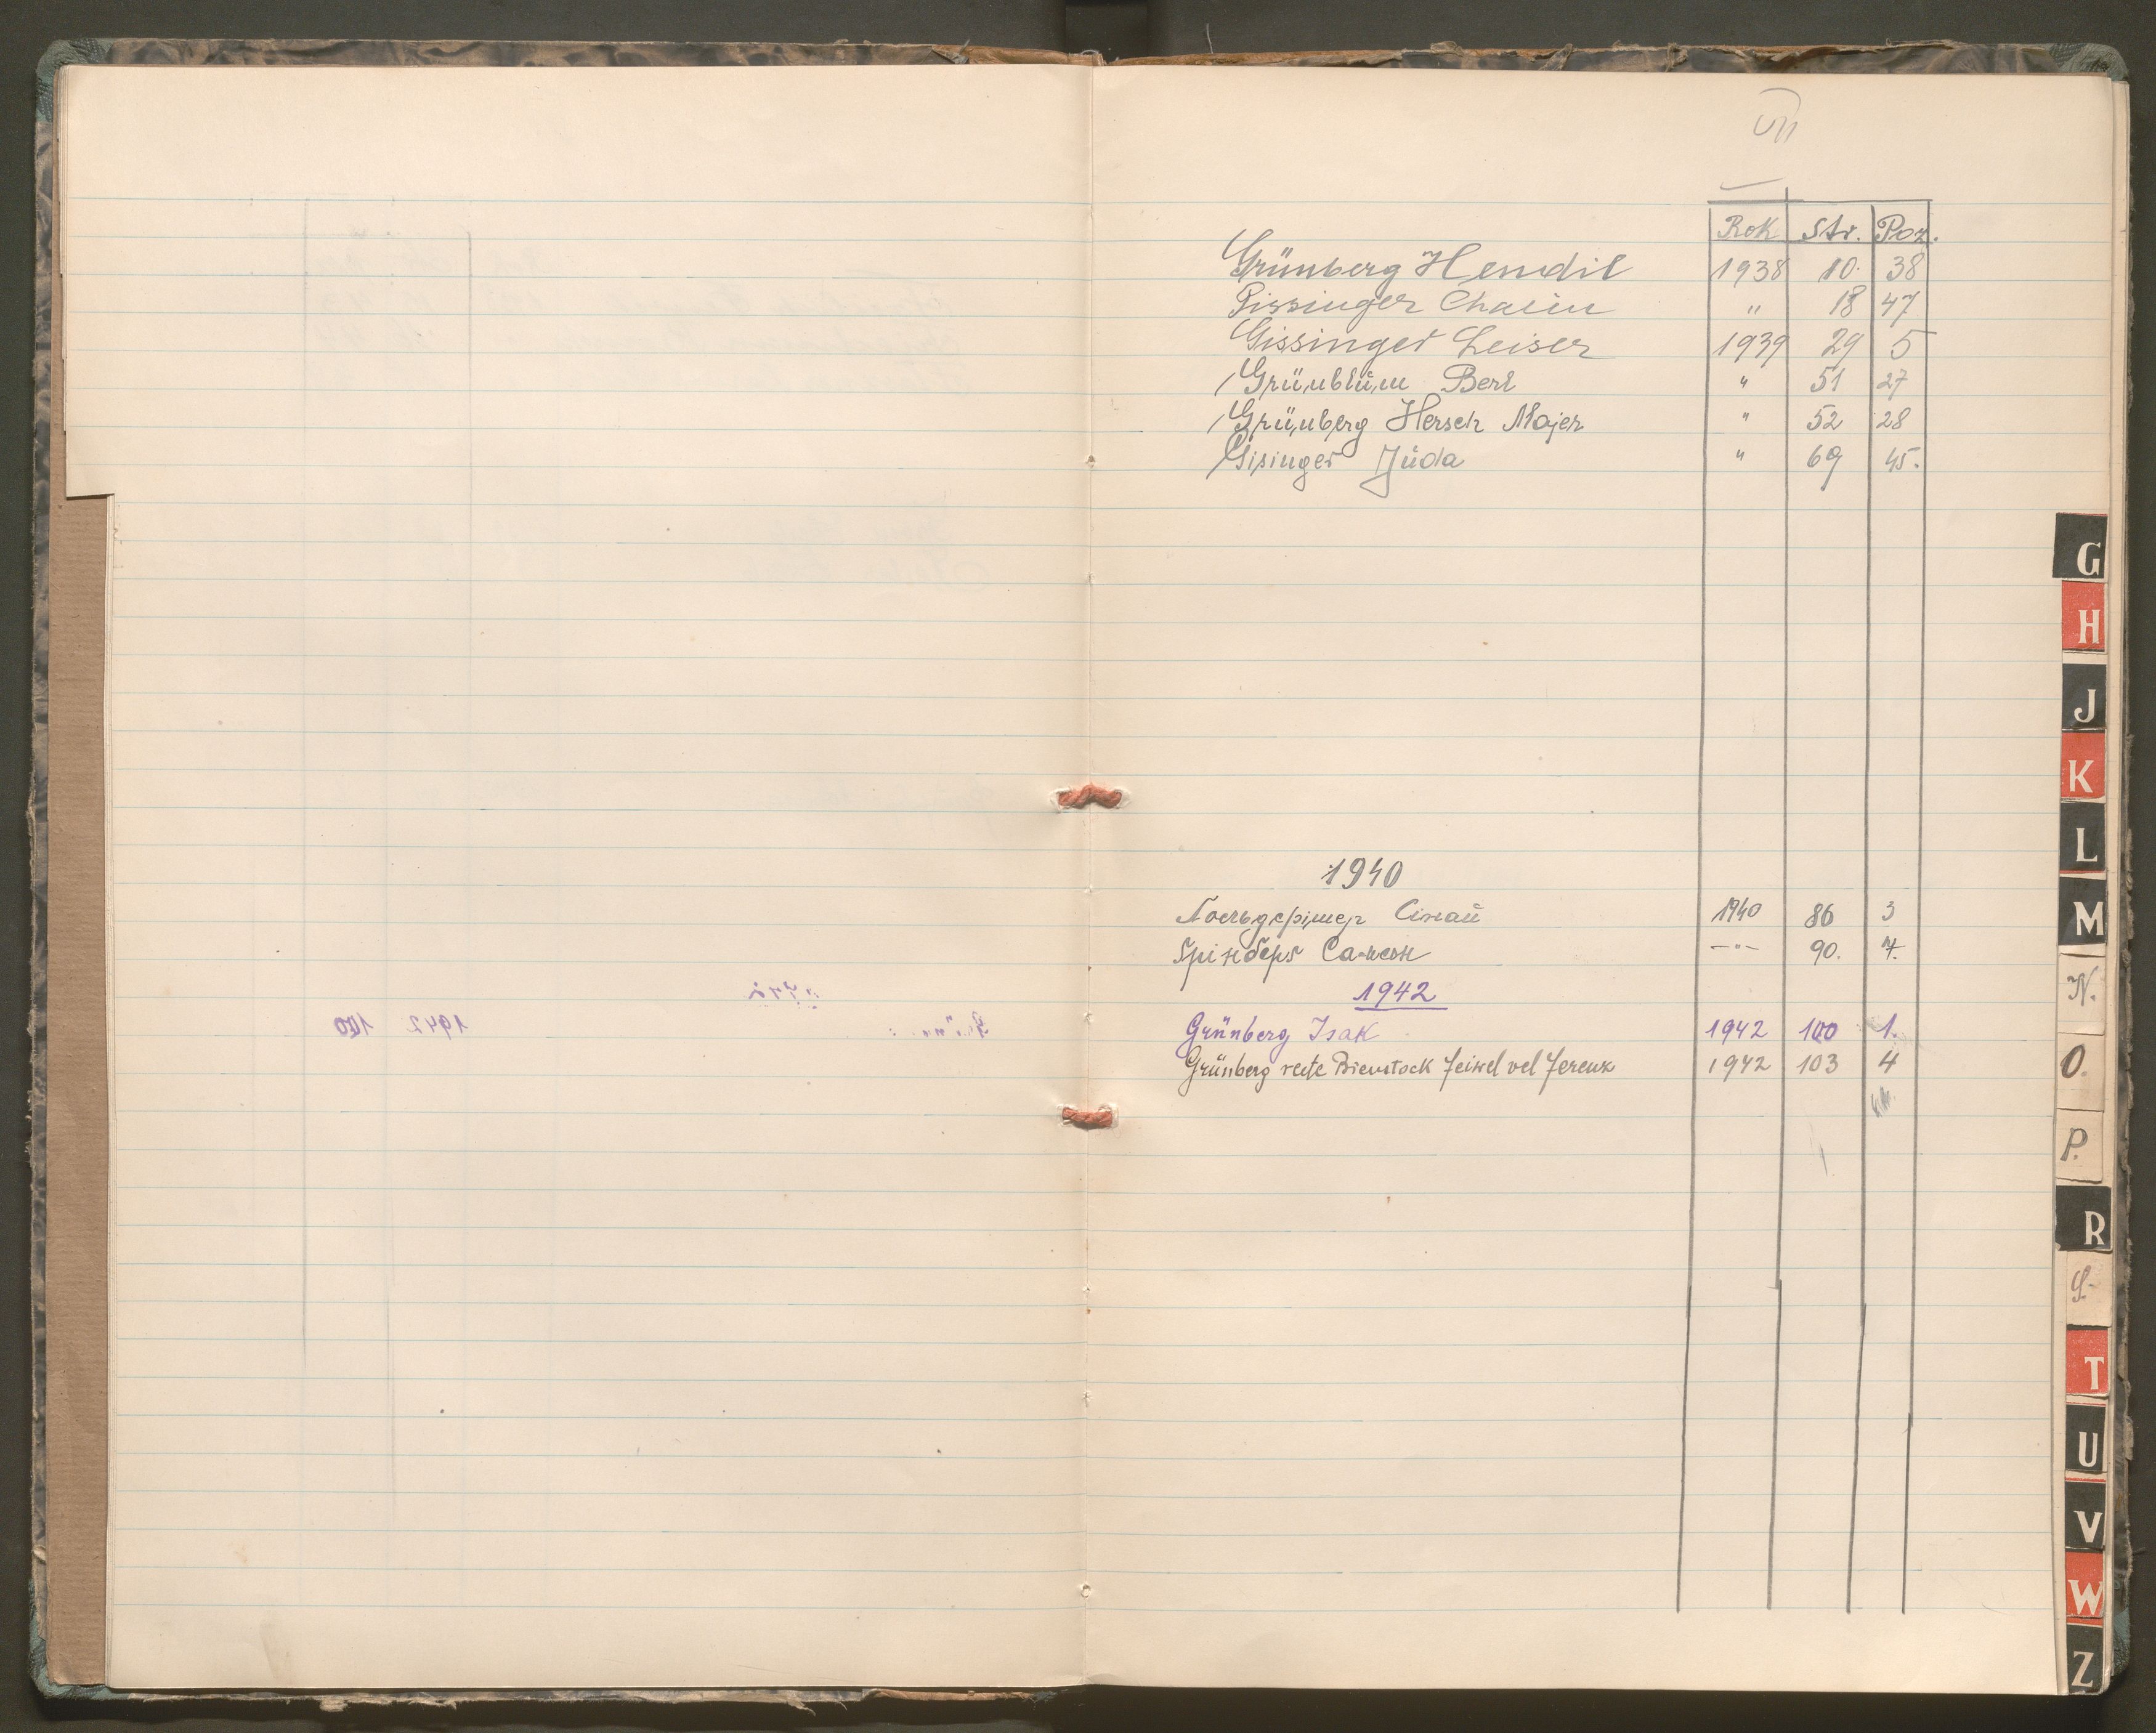 Rok Str. Poz.
Grünberg Hendil 1938 10. 38
Gissinger Chaim " 18 47
Gissinger Leiser 1939 29 5
Grünblüm Berl " 51 27
Grünberg Hersch Majer " 52 28
Gisinger Jüda " 69 45.
1940
Сінай 1940 86 3
Ґрінберґ Самсон —"— 90. 7.
1942
Grünberg Isak 1942 100 1.
Grünberg recte Bienstock 1942 103 4
G
H
J
K
L
M
N.
O.
P.
R
S.
T
U
V
W
Z